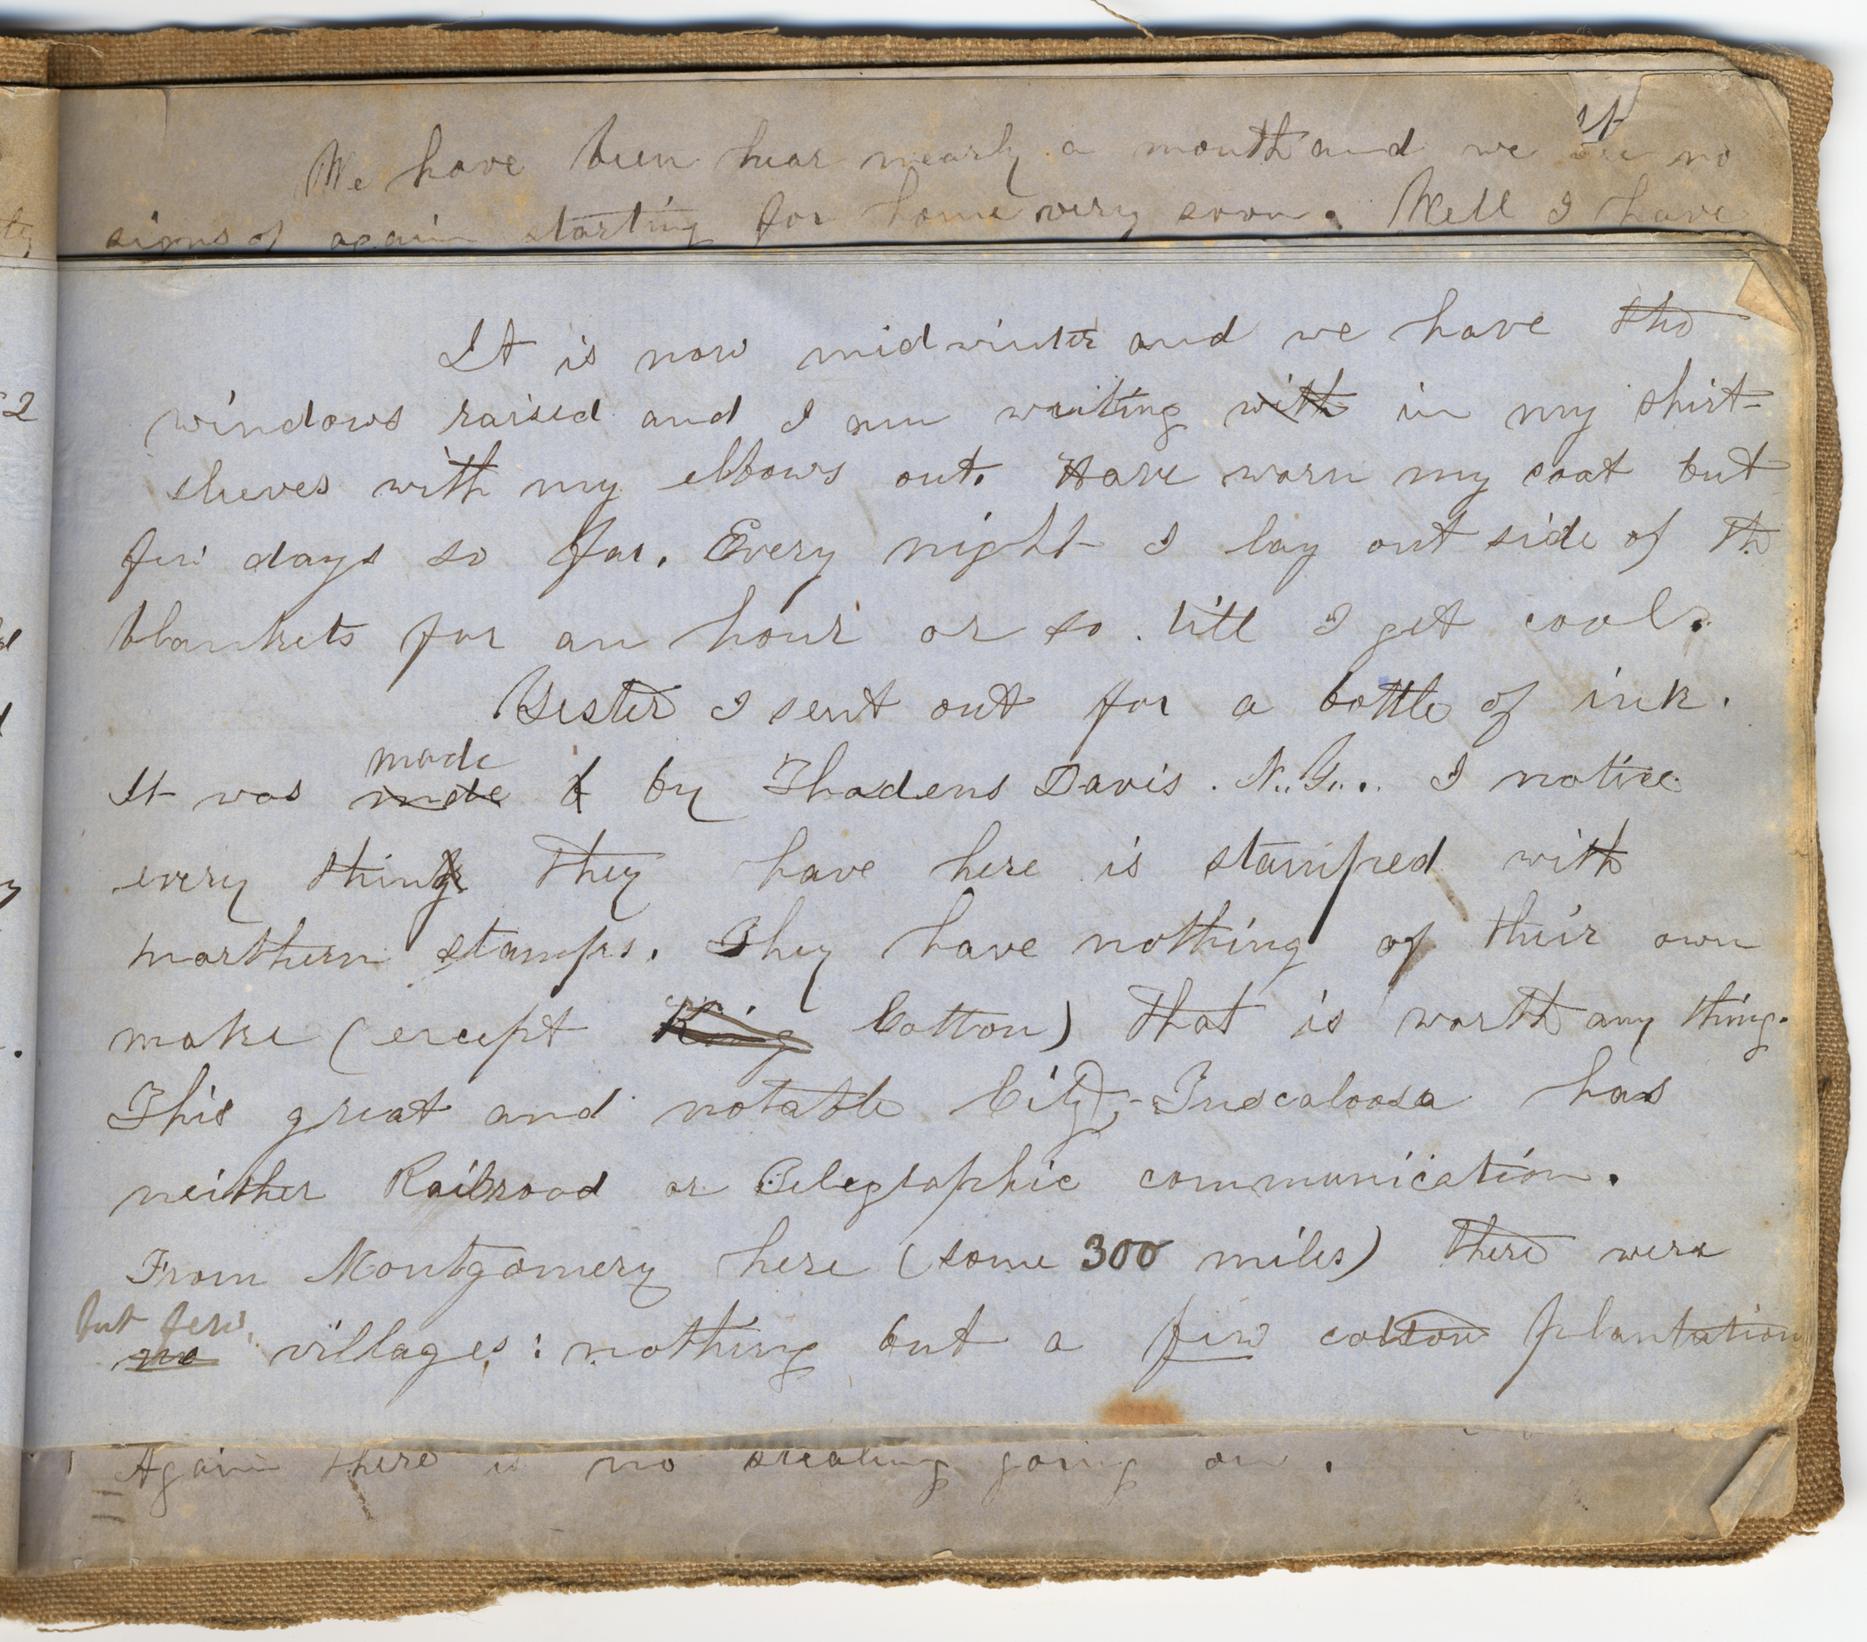 We have been hear nearly a month and we see no
signs of again starting for home very soon. Well I have
It is now midwinter and we have the
windows raised and I am writing with in my shirt-
sleeves with my elbows out. Have worn my coat but
few days so far. Every night I lay out side of th
blankets for an hour or so till I get cool.
Yester I sent out for a bottle of ink.
made
It was made by Thadeus Davis. N.Y... I notice
every thing they have here is stamped with
northern stamps. They have nothing of their own
make (except King Cotton) that is worth any thing.
This great and notable City;- Tuscaloosa has
neither Railroad or Telegraphic communication.
From Montgomery here (some 300 miles) there were
but few
no villages: nothing but a few cotton plantation
Again there is no stealing going on.